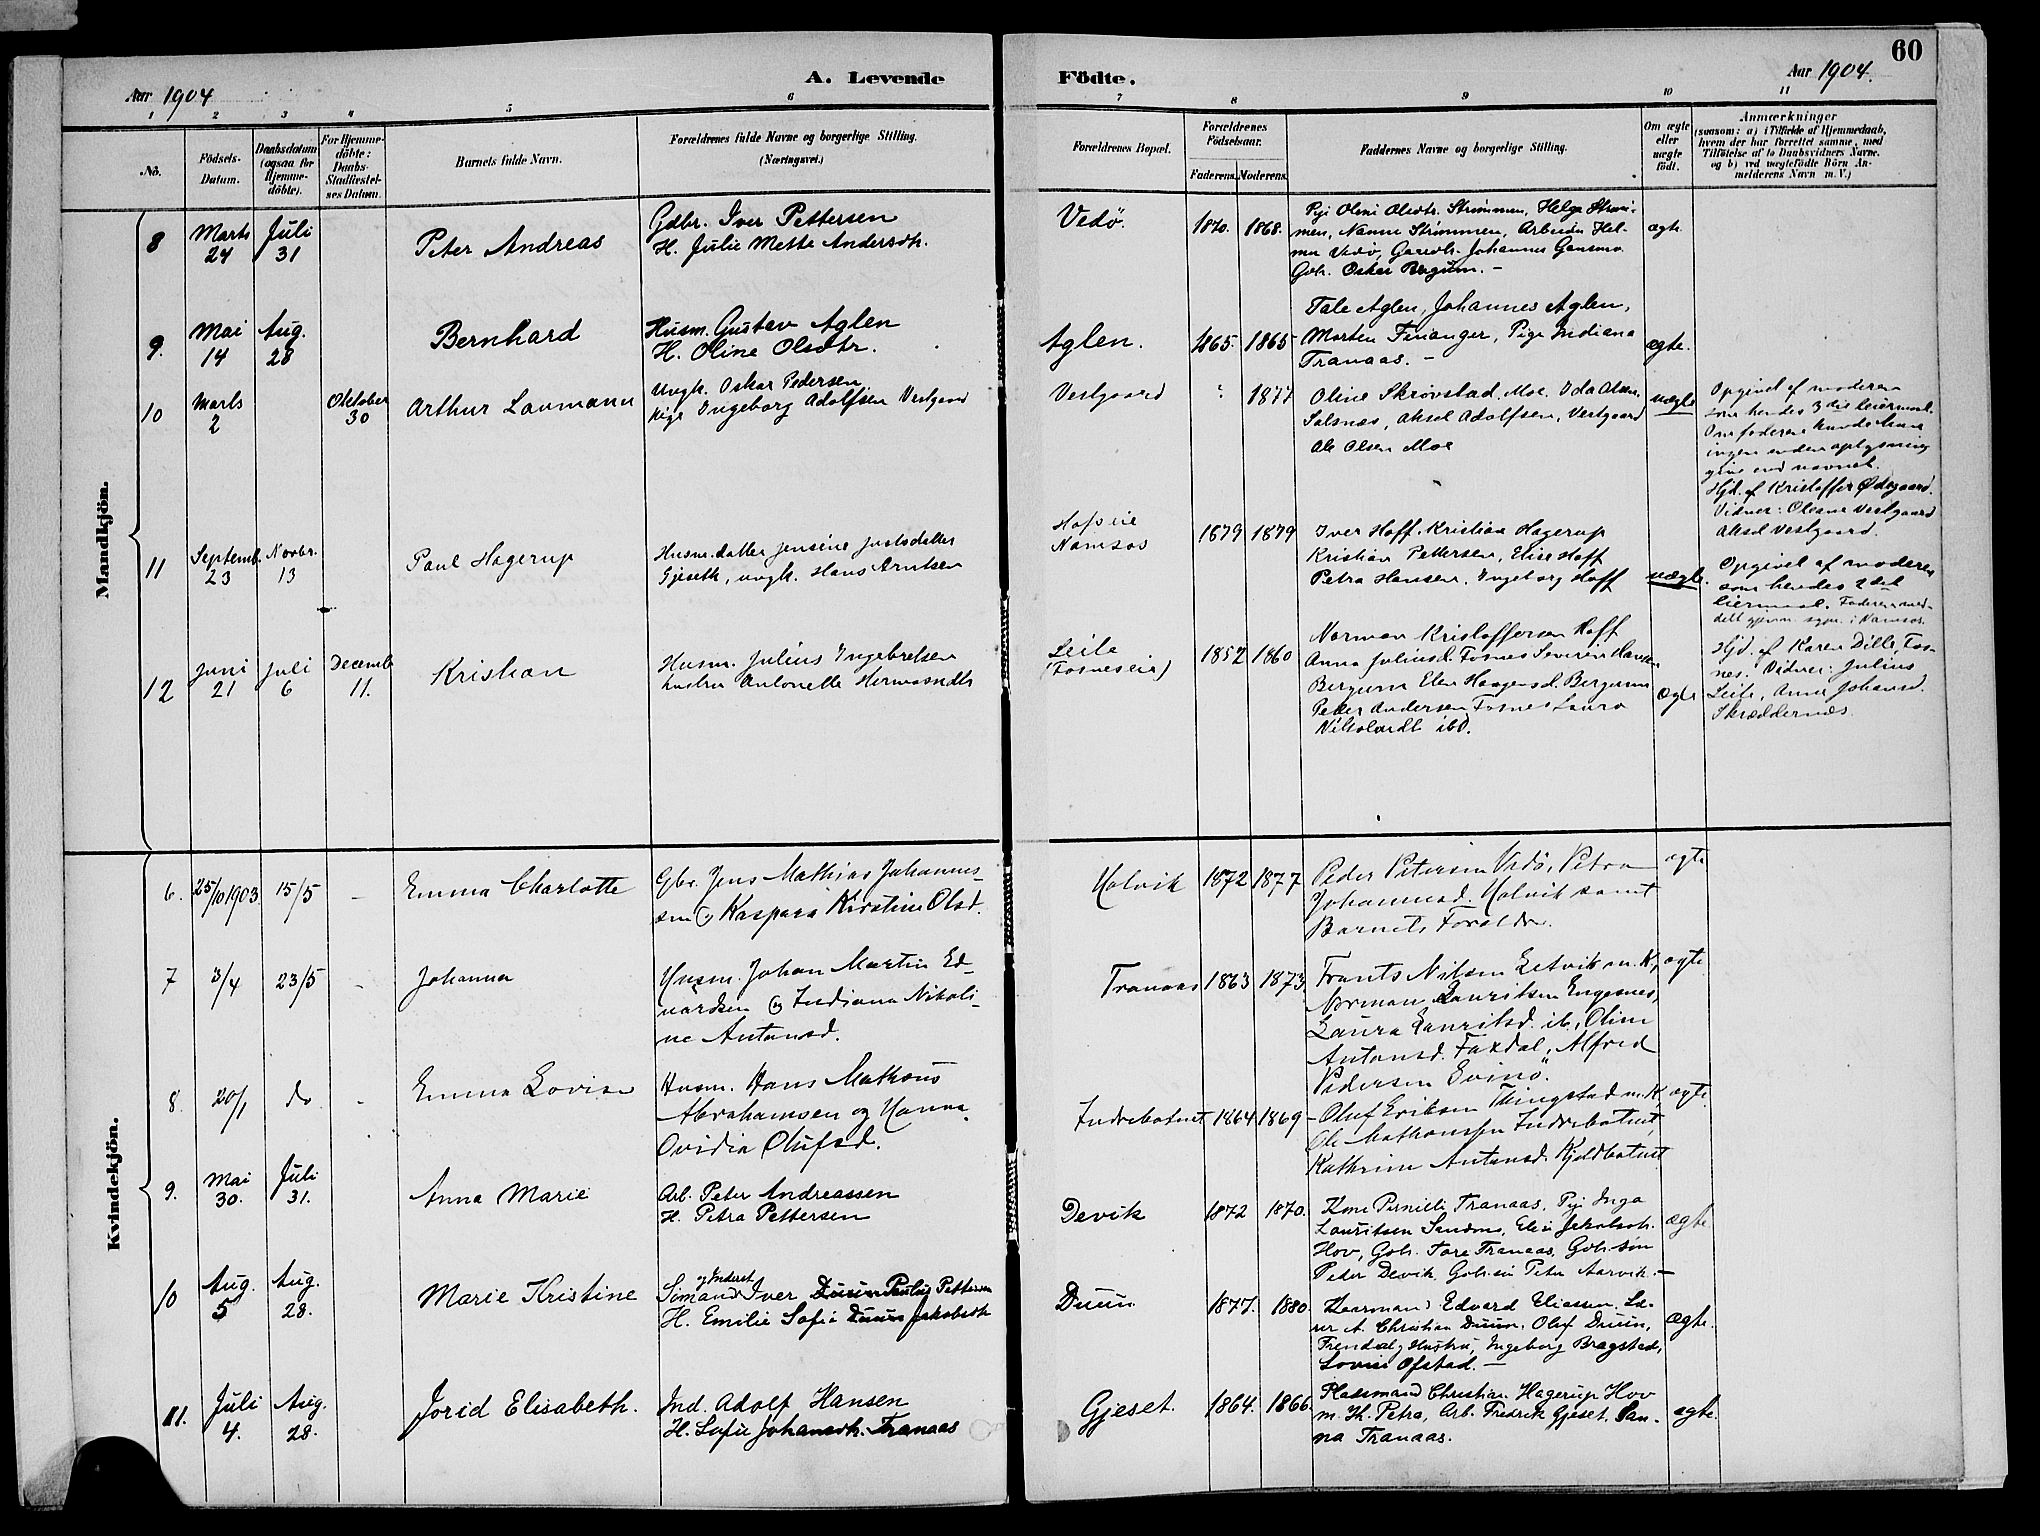 60
A. Levende
Födte.
Aar 1904
Aar 1904.
1 2 3 4 5 6 7 8 9 10 11
No.
Födsels-
Datum.
Daabsdatum
(ogsaa for
Hjemme-
döbte).
For Hjemme-
döbte:
Daabs-
Stadfæstel-
ses Datum.
Barnets fulde Navn.
Forældrenes fulde Navne og borgerlige Stilling.
(Næringsvei.)
Forældrenes Bopæl.
Forældrenes
Födselsaar.
Faderens. Moderens.
Faddernes Navne og borgerlige Stilling.
Om ægte
eller
uægte
födt.
Anmærkninger
(saasom: a) i Tilfælde af Hjemmedaab,
hvem der har forrettet samme, med
Tilföielse af to Daabsvidners Navne.
og b) ved uægtefödte Börn An-
melderens Navn m. V.)
Mandkjön.
8
Marts
24
Juli
31
Peter Andreas
Gdbr. Iver Pettersen
H. Julie Mette Andersdh.
Vedö.
1870. 1868.
Pige Oline Olsdtr. Strömmen, Helga Ström-
men, Nanna Strömmen, Arbeider Hel-
mer Vedö, Gaardb. Johannes Gansmo
Gdb. Oskar Bergum. -
ægte.
9.
Mai
14
Aug.
28
Bernhard
Husm. Gustav Aglen
H. Oline Olsdtr.
Aglen.
1865. 1865
Tale Aglen, Johannes Aglen,
Morten Finanger, Pige Indiana
Tranaas. -
ægte.
10
Marts
2
Oktober
30
Arthur Laumann
Ungk. Oskar Pedersen
Pige Ingeborg Adolfsen Vestgaard
Vestgaard
? 1877
Oline Skrovstad, Moe. Oda Olsen,
Salsnæs, Aksel Adolfsen, Vestgaard
Ole Olsen Moe
uægte
Opgivet af moderen
som hendes 3die leiermaal.
Om faderen kunde hun
ingen anden oplysning
give end navnet.
Hjd. af Kristoffer Ødegaard.
Vidner: Oleane Vestgaard
Aksel Vestgaard.
11
Septemb.
23
Novbr.
13
Paul Hagerup
Husm.datter Jensine Justsdatter
Gjeseth, ungk. Hans Arntsen
Hofseie
Namsos
1879 1879
Iver Hoff. Kristian Hagerup
Kristian Pettersen, Elise Hoff
Petra Hansen, Ingeborg Hoff
uægte.
Opgivet af moderen
som hendes 2det
leiermaal. Faderen med-
delt gjenm. sgpr. i Namsos.
12
Juni
21
Juli
6
Decemb
11.
Kristian
Husm. Julius Ingebretsen
hustru Antonette Hermansdtr
Leite
(Fosneseie)
1852 1860
Norman Kristoffersen Hoff
Anna Juliusd. Fosnes Severin Hansen
Bergum Elen Haagensd. Bergum
Peter Andersen Fosnes Laura
Nikolardt ibd.
Ægte
Hjd. af Karen Dille, Fos-
nes. Vidner: Julius
Leite, Anne Johansd.
Skræddernæs.
Kvindekjön.
6.
25/10 1903
15/5
-
Emma Charlotte
Gbr. Jens Mathias Johannes-
sen og Kaspara Kirstine Olsd.
Holvik
1872 1877
Peder Petersen Vedö, Petra
Johannesd. Holvik samt
Barnets Forældre.
ægte
7
3/4
23/5
-
Johanna
Husm. Johan Martin Ed-
vardsen og Indiana Nikoli-
ne Antonsd.
Tranaas
1863 1873.
Frants Nilsen Setvik m. K,
Norman Lauritsen Engesnes,
Laura Lauritsd. ib, Oline
Antonsd. Faxdal, Alfred
Pedersen Svinö.
ægte
8.
20/1
do
-
Emma Lovise
Husm. Hans Mathæus
Abrahamsen og Hanna
Ovidia Olufsd.
Indrebotnet
1864 1869
Oluf Eriksen Thingstad m. K,
Ole Mathæussen Indrebotnet,
Kathrine Antonsd. Kjeldbotnet
ægte.
9.
Mai
30.
Juli
31.
Anna Marie
Arb. Peter Andreassen
H. Petra Pettersen
Devik
1872 1870.
Kone Pernille Tranaas, Pige Inga
Lauritsen Sandmo, Elise Jakobsdt.
Hov, Gbh. Tore Tranaas, Gbh. sön
Peder Devik, Gbh.sön Peter Aarvik. -
ægte
10
Aug.
5
Aug.
28.
Marie Kristine
og Inderst
Sömand Iver Duun Paulus Pettersen
H. Emilie Sofie Duun Jakobsdtr
Duun
1877. 1880.
Kaarmand Edvard Eliassen. Læ-
rer A. Christian Duun, Oluf Duun,
Frendal og Hustru, Ingeborg Bragstad,
Lovise Ofstad. -
ægte.
11.
Juli
4.
Aug.
28.
Jorid Elisabeth.
Ind. Adolf Hansen
H. Sofie Johansdtr. Tranaas
Gjeset.
1864. 1866.
Pladsmand Christian Hagerup Hov
m. H. Petra, Arb. Fredrik Gjeset, San-
na Tranaas.
ægte.